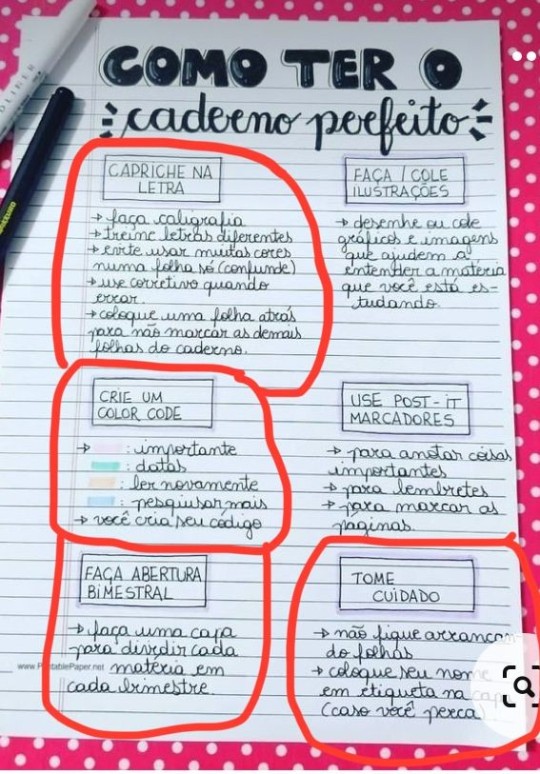 COMO TER O
caderno perfeito
CAPRICHE NA
LETRA
→ faça caligrafia
→ treine letras diferentes
→ evite usar muitas cores
numa folha só (confunde)
→ use corretivo quando
errar.
→ coloque uma folha atrás
para não marcar as demais
folhas do caderno.
FAÇA / COLE
ILUSTRAÇÕES
→ desenhe ou cole
gráficos e imagens
que ajudem a
entender a matéria
que você está es-
tudando.
CRIE UM
COLOR CODE
→ : importante
: datas
: ler novamente
: pesquisar mais
→ você cria seu código
USE POST-IT
MARCADORES
→ para anotar coisas
importantes
→ para lembretes
→ para marcar as
páginas.
FAÇA ABERTURA
BIMESTRAL
→ faça uma capa
para dividir cada
matéria em
cada bimestre.
www.PrintablePaper.net
TOME
CUIDADO
→ não fique arrancan
do folhas
→ coloque seu nome
em etiqueta na capa
(caso você perca)